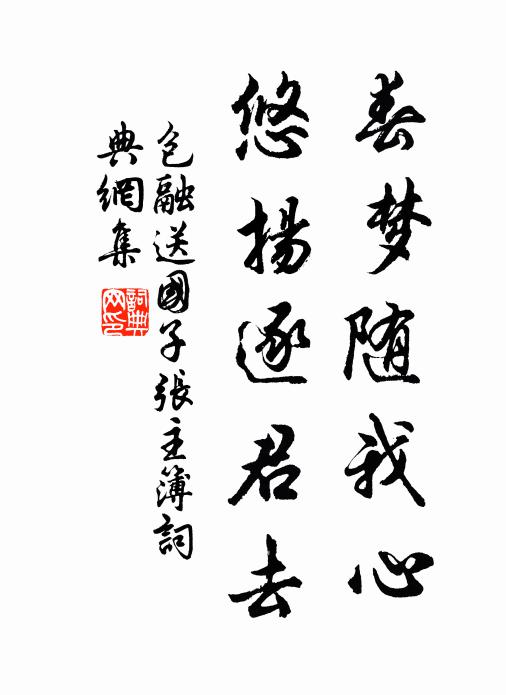 春梦随我心
悠揚逐君去
包融送國子張主簿詞
典網集
詞典
网印